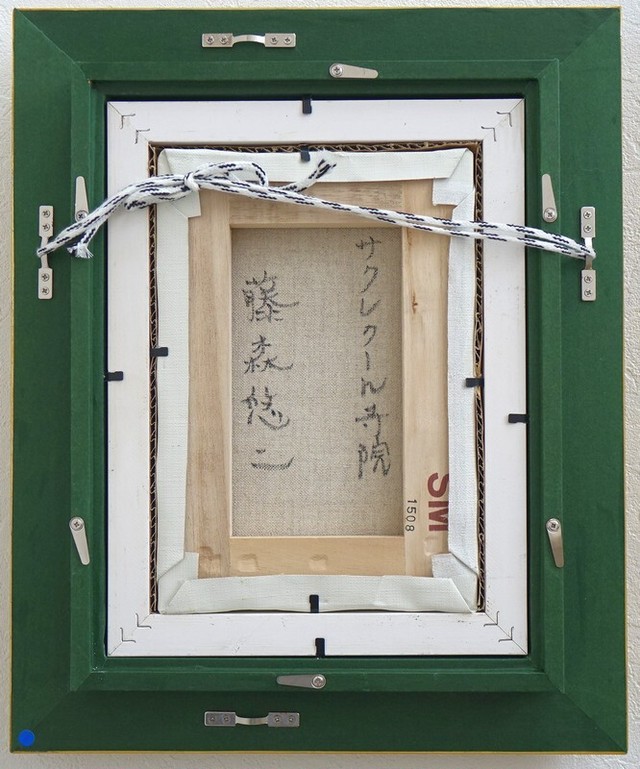 サクレクール寺院
藤森悠二
SM
1508